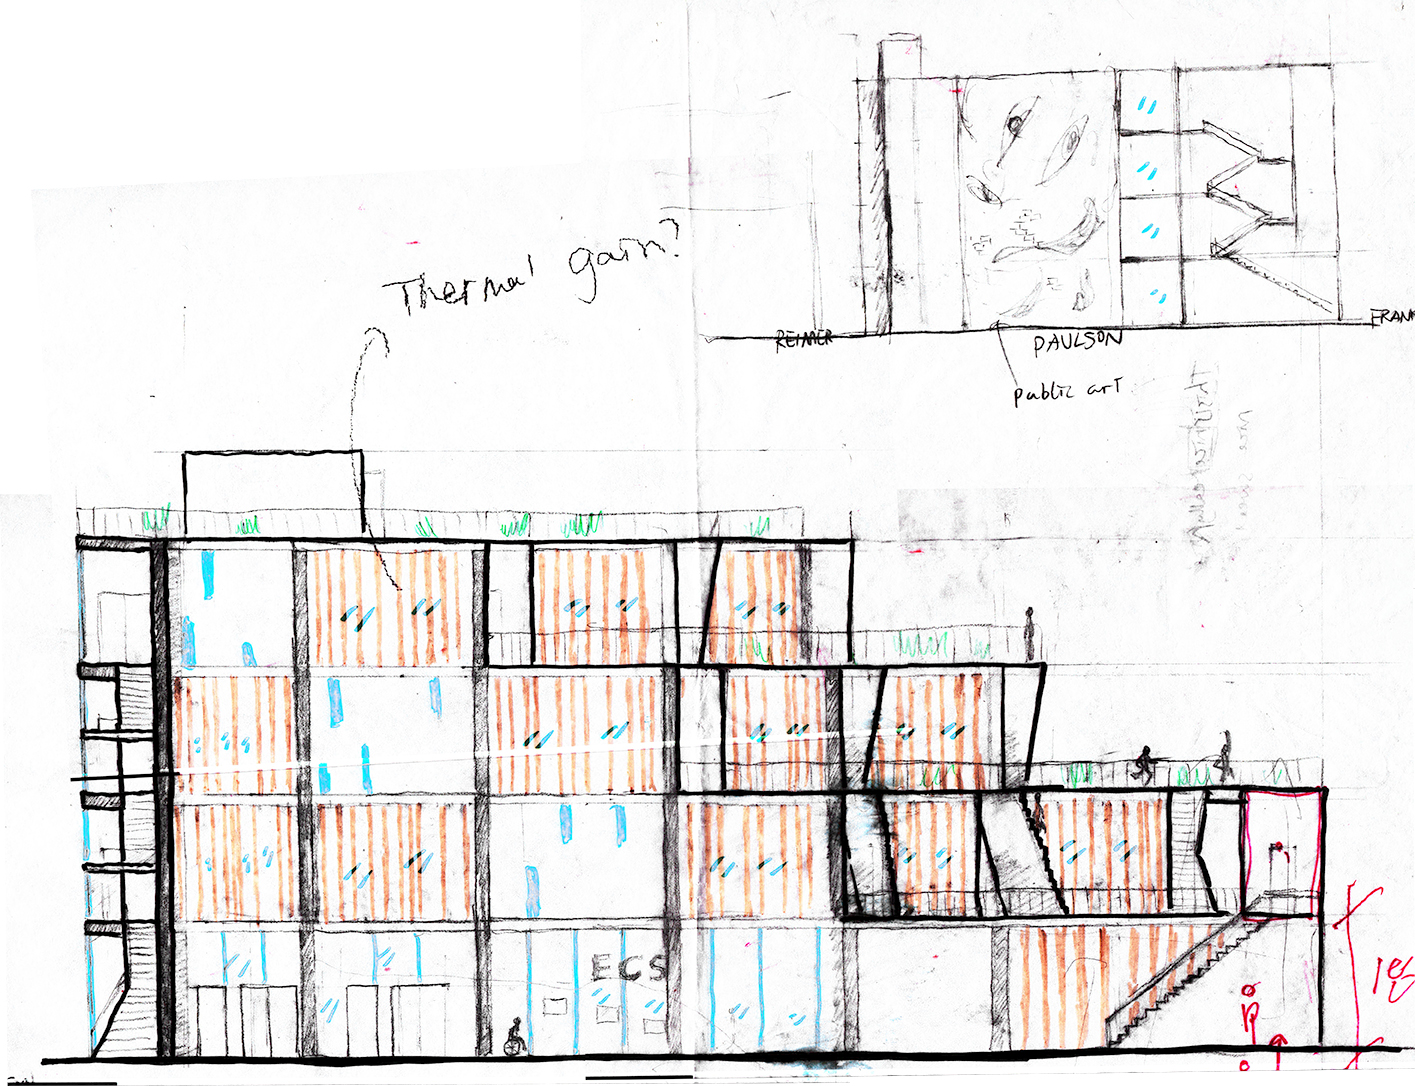 Thermal gain?
REIMER
PAULSON
FRANK
public art
ECS